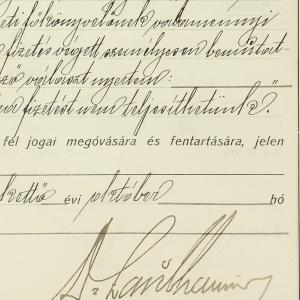 főkönyvelőnek valamennyi
fizetés végett személyesen bemutat-
ző választ nyertem:
fizetést nem teljesíthetünk."
fél jogai megóvására és fentartására, jelen
kettő évi október hó
Dr